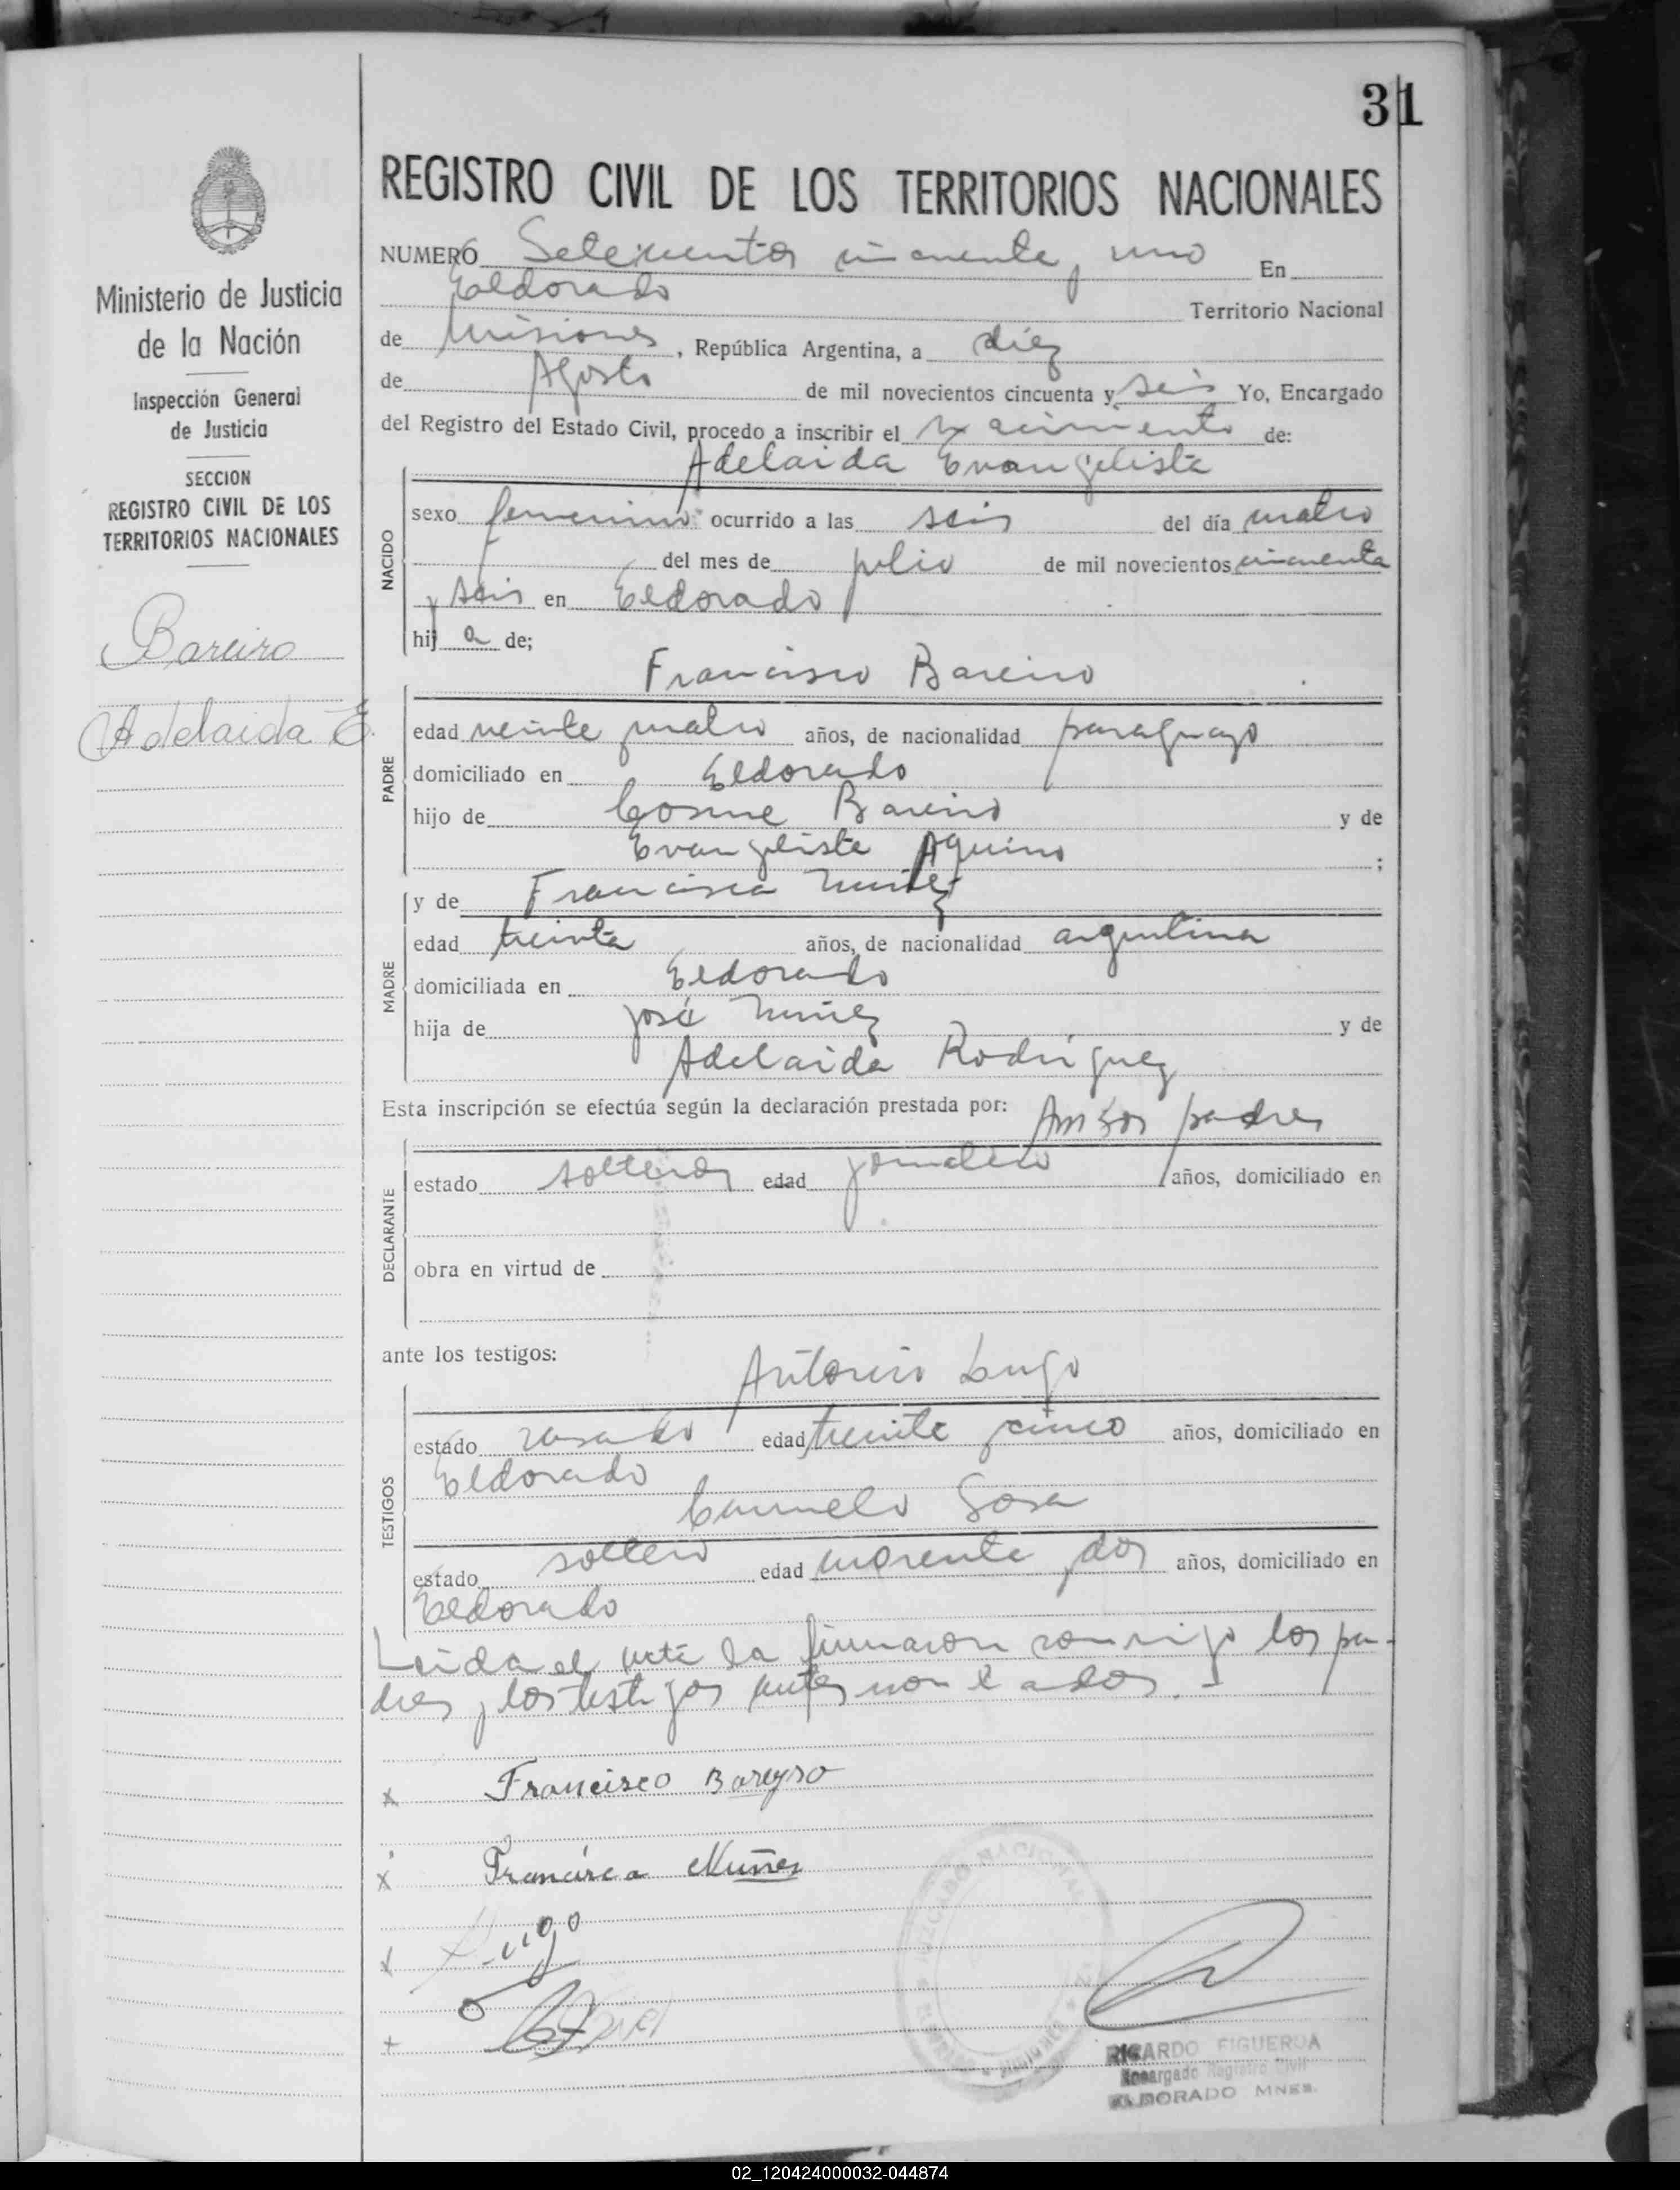 31
REGISTRO CIVIL DE LOS TERRITORIOS NACIONALES
Ministerio de Justicia
de la Nación
Inspección General
de Justicia
SECCION
REGISTRO CIVIL DE LOS
TERRITORIOS NACIONALES
Bareiro
Adelaida E.
NUMERO Setecientos cincuenta y uno En
Eldorado Territorio Nacional
de Misiones, República Argentina, a diez
de Agosto de mil novecientos cincuenta y seis Yo, Encargado
del Registro del Estado Civil, procedo a inscribir el nacimiento de:
Adelaida Evangelista
NACIDO
sexo femenino ocurrido a las seis del día cuatro
del mes de julio de mil novecientos cincuenta
y seis en Eldorado
hija de;
Francisco Bareiro
PADRE
edad veinte y cuatro años, de nacionalidad paraguayo
domiciliado en Eldorado
hijo de Cosme Bareiro y de
Evangelista Aquino ;
y de Francisca Nuñez
MADRE
edad treinta años, de nacionalidad argentina
domiciliada en Eldorado
hija de José Nuñez y de
Adelaida Rodríguez
Esta inscripción se efectúa según la declaración prestada por: Ambos padres
DECLARANTE
estado solteros edad jornalero años, domiciliado en
obra en virtud de
ante los testigos:
Antonio Lugo
TESTIGOS
estado casado edad treinta y cinco años, domiciliado en
Eldorado
Carmelo Sosa
estado soltero edad cuarenta y dos años, domiciliado en
Eldorado
Leida el acta la firmaron conmigo los pa-
dres y los testigos antes nombrados.
x Francisco Bareyro
x Francisca Nuñes
x Lugo
+
RICARDO FIGUEROA
Encargado Registro Civil
ELDORADO MNES.
02_120424000032-044874